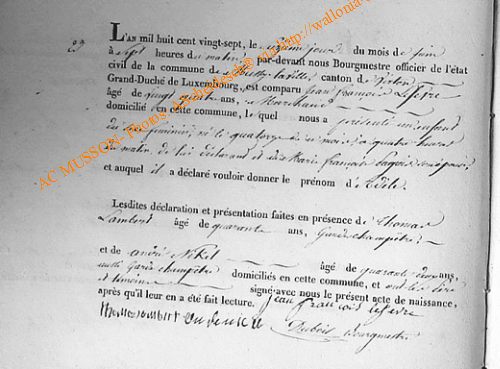 L'AN mil huit cent vingt-sept, le jour du mois de juin
à sept heures du matin, par-devant nous Bourgmestre officier de l'état
civil de la commune de canton de Virton
Grand-Duché de Luxembourg, est comparu jean françois Lefevre
âgé de vingt quatre ans, Marchand
domicilié en cette commune, lequel nous a présenté un enfant
du sexe feminin, né le quatorze de ce mois à quatre heures
du matin de lui déclarant et de Marie françoise son épouse
et auquel il a déclaré vouloir donner le prénom d'Adele
Lesdites déclaration et présentation faites en présence de Thomas
Lambert âgé de quarante ans, Garde champêtre
et de andré Nekel âgé de quarante ans,
Garde champêtre domiciliés en cette commune, et ont les père
et témoins signé avec nous le présent acte de naissance,
après qu'il leur en a été fait lecture. jean françois lefevre
thomas lambert
Dubois Bourgmestre
AC MUSSON- Photos http://wallonia